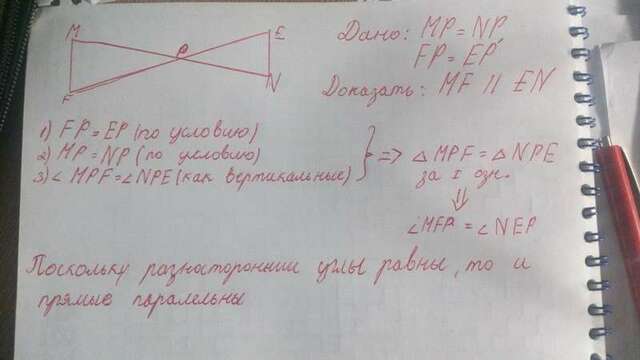 M
E
P
F
N
Дано: MP = NP
FP = EP
Доказать: MF || EN
1) FP = EP (по условию)
2) MP = NP (по условию)
3) ∠ MPF = ∠ NPE (как вертикальные)
} => △ MPF = △ NPE
за I озн.
⇓
∠MFP = ∠NEP
Поскольку разностороннии углы равны, то и
прямые паралельны